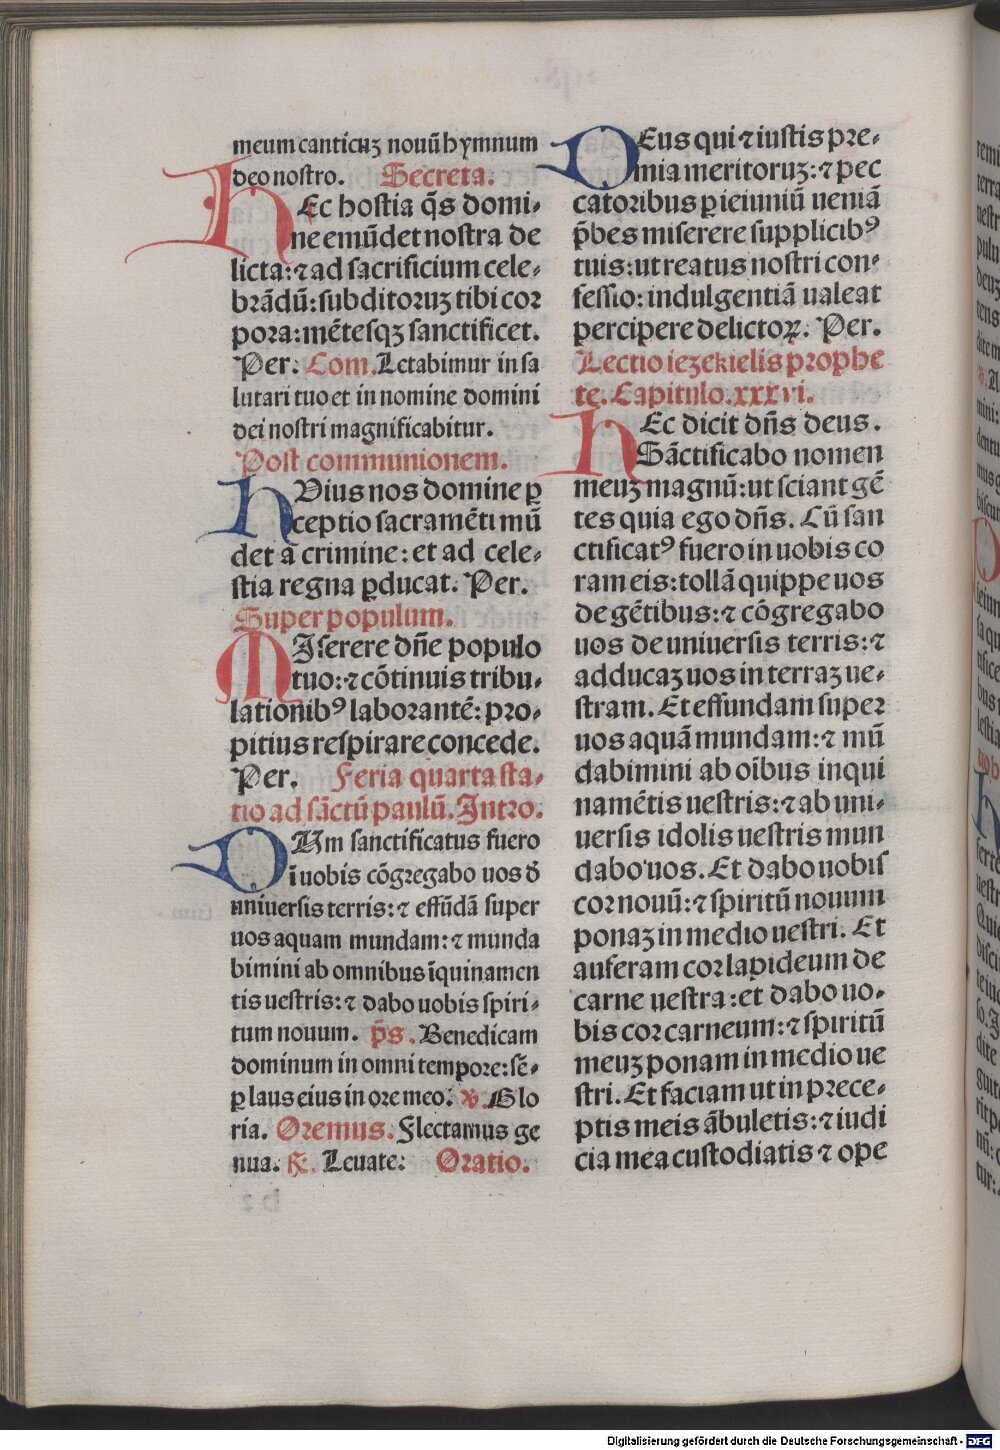 meum canticuʒ nouū hymnum
deo nostro. Secreta.
HEc hostia q̄s domi-
ne emūdet nostra de
licta: ⁊ ad sacrificium cele-
brādū: subditoruʒ tibi cor
pora: mētesqʒ sanctificet.
Per: Com. Letabimur in sa
lutari tuo et in nomine domini
dei nostri magnificabitur.
Post communionem.
HUius nos domine ꝑ
ceptio sacramēti mū
det a crimine: et ad cele-
stia regna ꝑducat. Per.
Super populum.
MIserere dn̄e populo
tuo: ⁊ cōtinuis tribu-
lationibꝰ laborantē: pro-
pitius respirare concede.
Per. Feria quarta sta-
tio ad sāctū paulū. Intro.
DUm sanctificatus fuero
ī uobis cōgregabo uos d̄
uniuersis terris: ⁊ effūdā super
uos aquam mundam: ⁊ munda
bimini ab omnibus īquinamen
tis uestris: ⁊ dabo uobis spiri-
tum nouum. p̄s. Benedicam
dominum in omni tempore: sē-
ꝑ laus eius in ore meo. ℣. Glo
ria. Oremus. Flectamus ge
nua. ℟. Leuate: Oratio.
DEus qui ⁊ iustis pre-
mia meritoruʒ: ⁊ pec
catoribus ꝑ ieiuniū ueniā
p̄bes miserere supplicibꝰ
tuis: ut reatus nostri con-
fessio: indulgentiā ualeat
percipere delictoꝝ. Per.
Lectio iezekielis prophe
te. Capitulo. xxxvi.
HEc dicit dn̄s deus.
Sāctificabo nomen
meuʒ magnū: ut sciant gē
tes quia ego dn̄s. Cū san
ctificatꝰ fuero in uobis co
ram eis: tollā quippe uos
de gētibus: ⁊ cōgregabo
uos de uniuersis terris: ⁊
adducaʒ uos in terraʒ ue-
stram. Et effundam super
uos aquā mundam: ⁊ mū
dabimini ab oībus inqui
namētis uestris: ⁊ ab uni-
uersis idolis uestris mun
dabo uos. Et dabo uobis
cor nouū: ⁊ spiritū nouum
ponaʒ in medio uestri. Et
auferam cor lapideum de
carne uestra: et dabo uo-
bis cor carneum: ⁊ spiritū
meuʒ ponam in medio ue
stri. Et faciam ut in prece-
ptis meis ābuletis: ⁊ iudi
cia mea custodiatis ⁊ ope
Digitalisierung gefördert durch die Deutsche Forschungsgemeinschaft - DFG